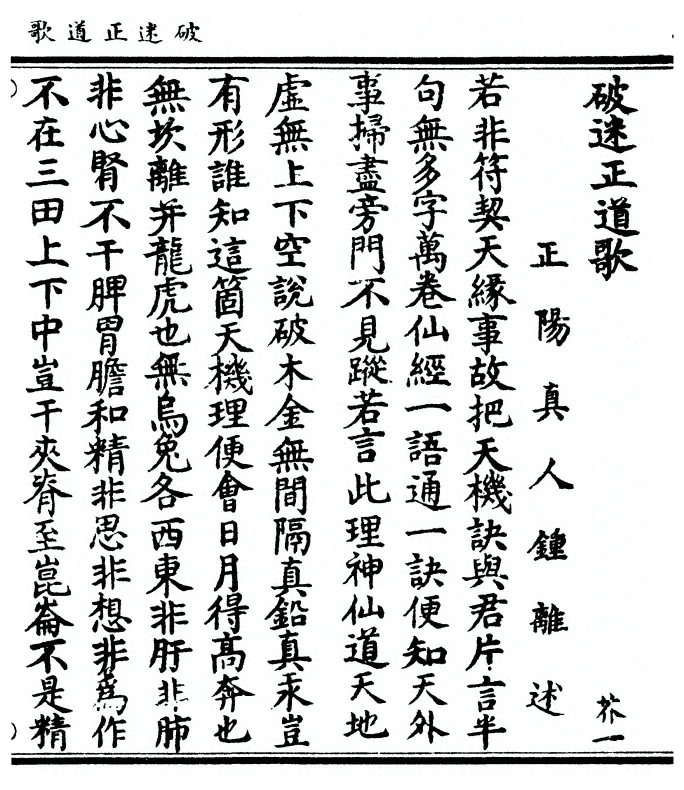 破迷正道歌
破迷正道歌 芥一
正陽真人鍾離述
若非符契天緣事故把天機訣與君片言半
句無多字萬卷仙經一語通一訣便知天外
事掃盡旁門不見蹤若言此理神仙道天地
虛無上下空說破木金無間隔真鉛真汞豈
有形誰知這箇天機理便會日月得高奔也
無坎離并龍虎也無烏兔各西東非肝非肺
非心腎不干脾胃膽和精非思非想非為作
不在三田上下中豈干夾脊至崑崙不是精